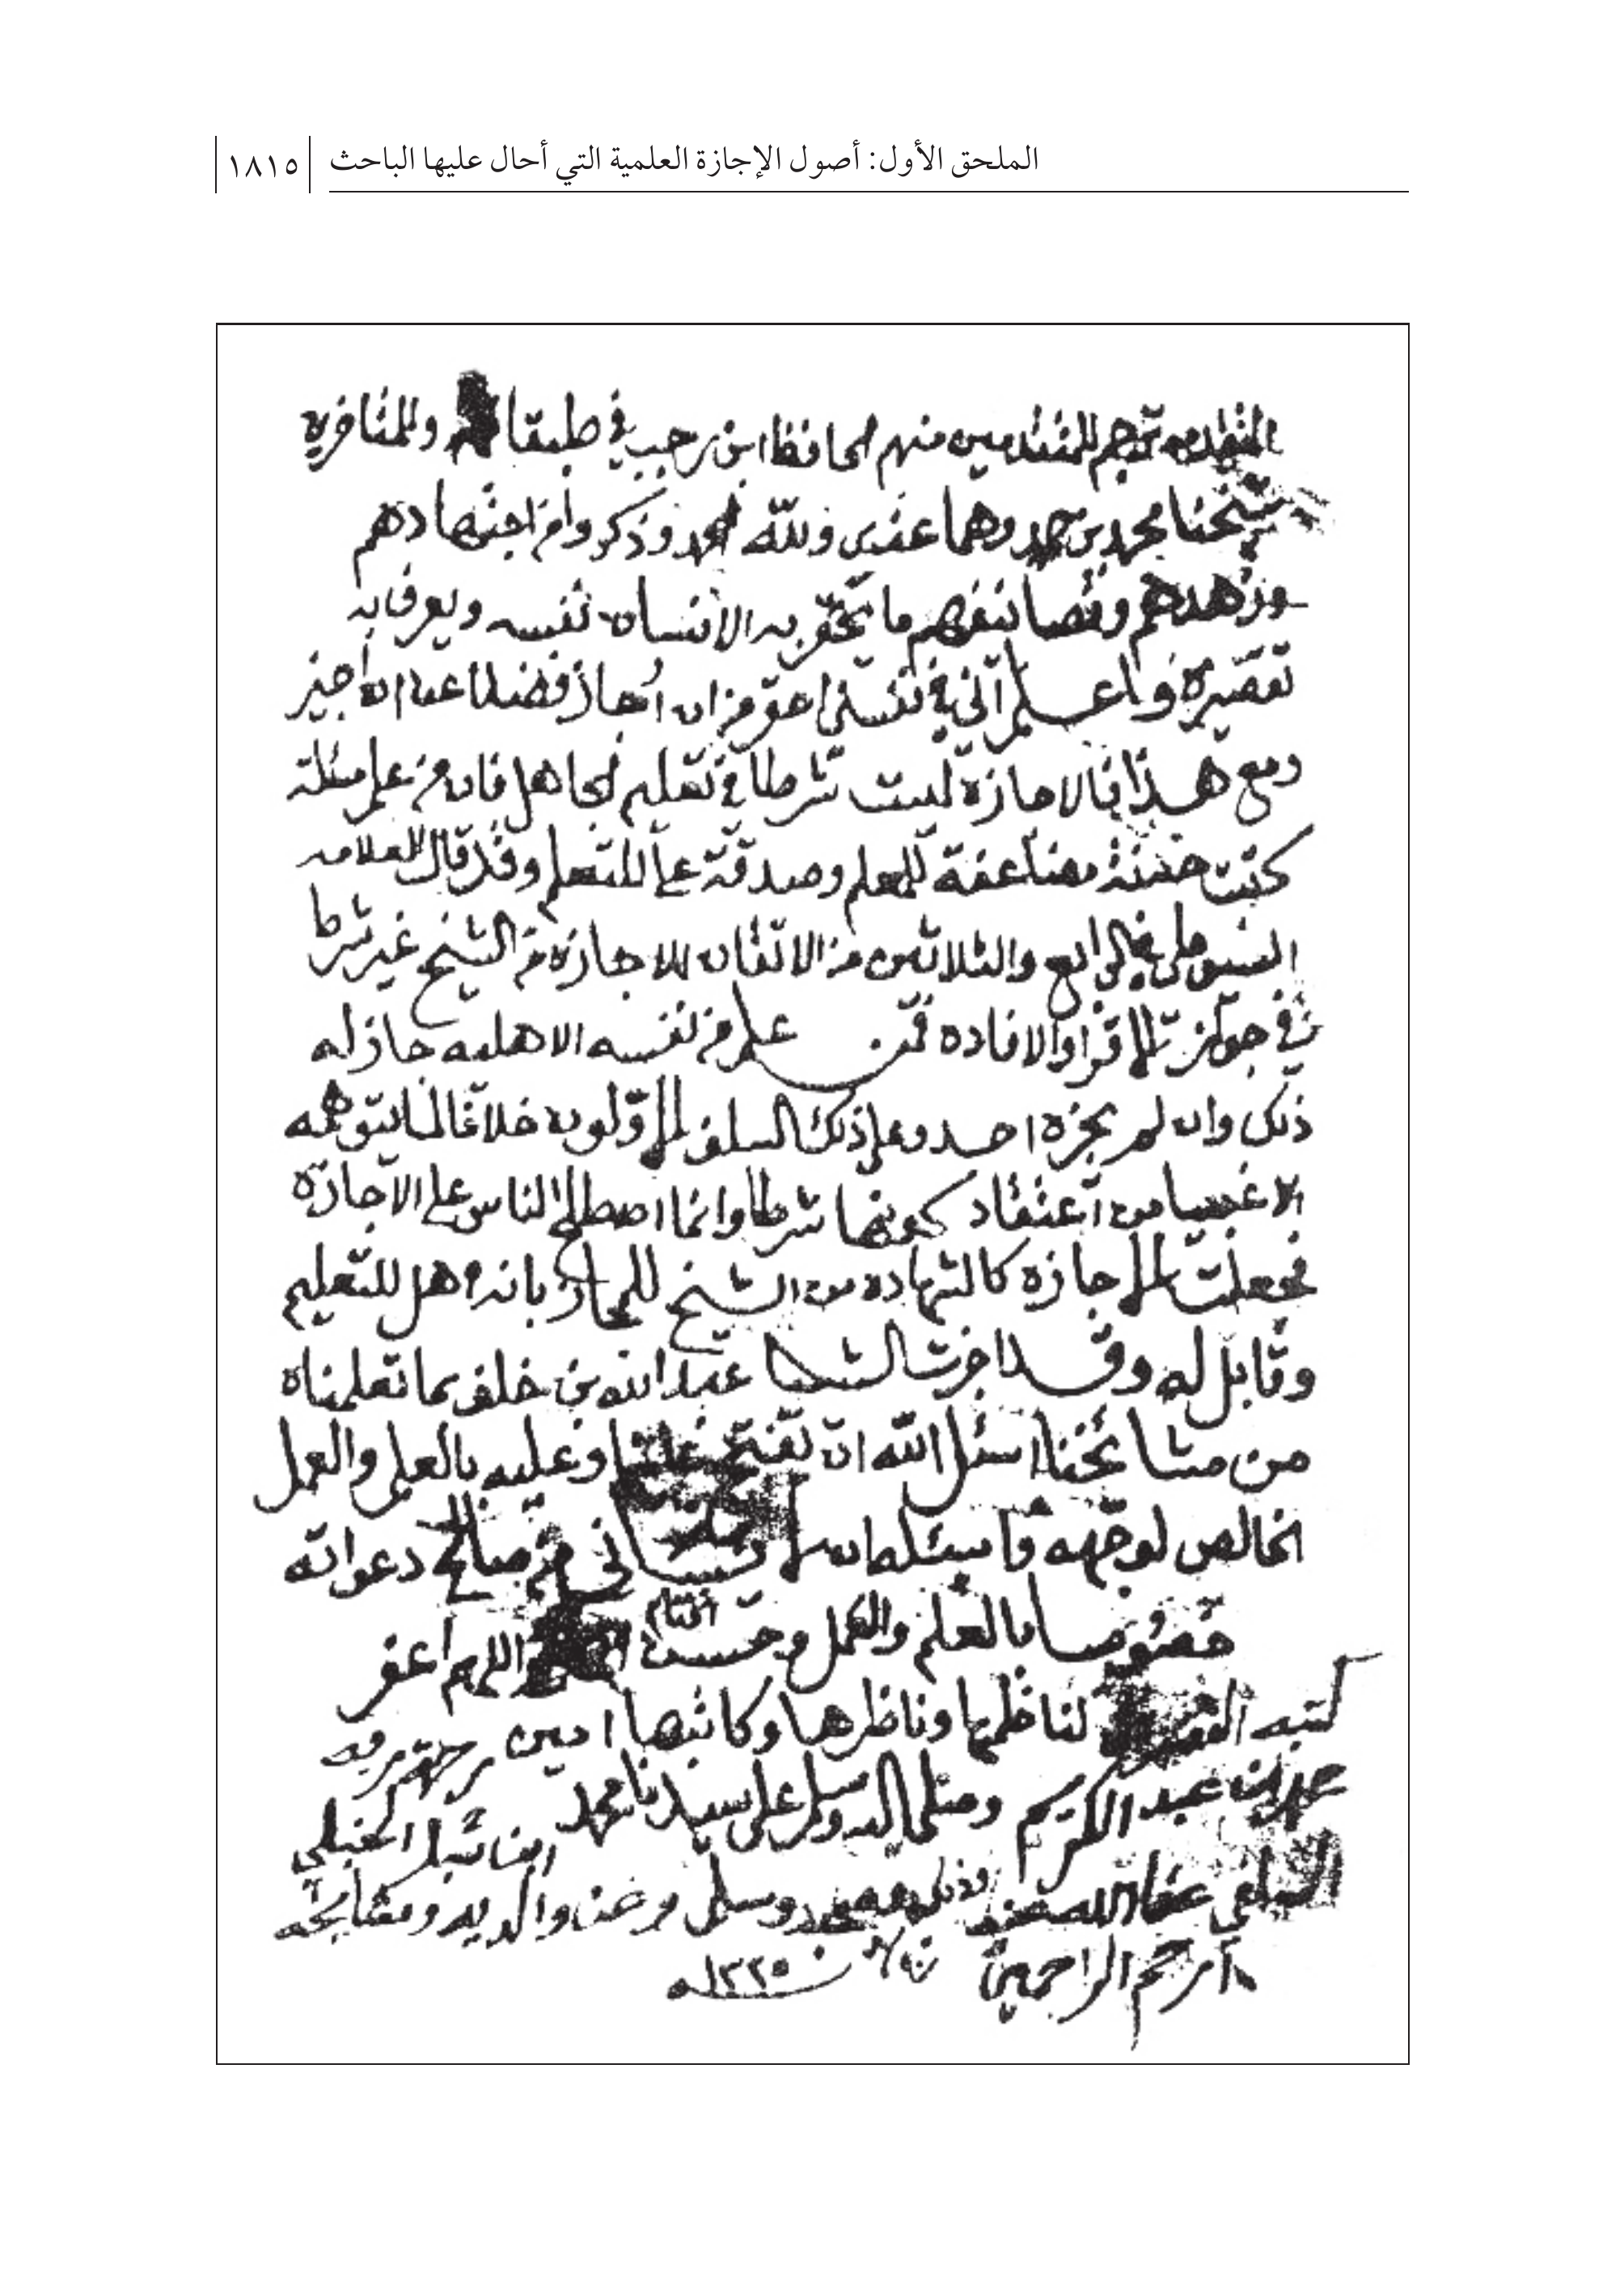 الملحق الأول: أصول الإجازة العلمية التي أحال عليها الباحث
١٨١٥
ترجم للمتقدمين منهم الحافظ ابن رجب في طبقا وللمتاخرين
شيخنا محمد بن حميد وهما عندي ولله الحمد وذكروا من اجتهادهم
وزهدهم وتصانيفهم ما يحقر به الانسان نفسه ويعرف به
تقصيره واعلم اني في نفسي احق من ان أجاز فضلا عن ان اجيز
ومع هذا فالاجازة ليست شرطا في تعليم الجاهل فان من علم مسئلة
كتبت حسنة مضاعفة للمعلم وصدقة على المتعلم وقد قال العلامه
السيوطي في الرابع والثلاثين من الاتقان الاجازة من الشيخ غير شرط
في جواز الاقرا والافاده فمن علم من نفسه الاهليه جاز له
ذلك وان لم يجزه احد وعلى ذلك السلف الاولون خلافا لما يتوهمه
الاغبيا من اعتقاد كونها شرطا وانما اصطلح الناس على الاجازة
فجعلت الاجازة كالشهاده من الشيخ للمجاز بانه اهل للتعليم
وقابل له وقد اجزت الشيخ عبد الله بن خلف بما تعلمناه
من مشائخنا اسئل الله ان يفتح علينا وعليه بالعلم والعمل
الخالص لوجهه واسئله ان لا ينساني من صالح دعواته
خصوصا بالعلم والعمل وحسن الختام اللهم اغفر
كتبه الفقير لناظمها وناظرها وكاتبها امين رحمة ربه
محمد بن عبد الكريم وصلى الله وسلم على سيدنا محمد ابن شبل الحنبلي
السلفي عفا الله عنه وسلم وعن والديه ومشايخه
ارحم الراحمين سنة ١٣٣٥هـ